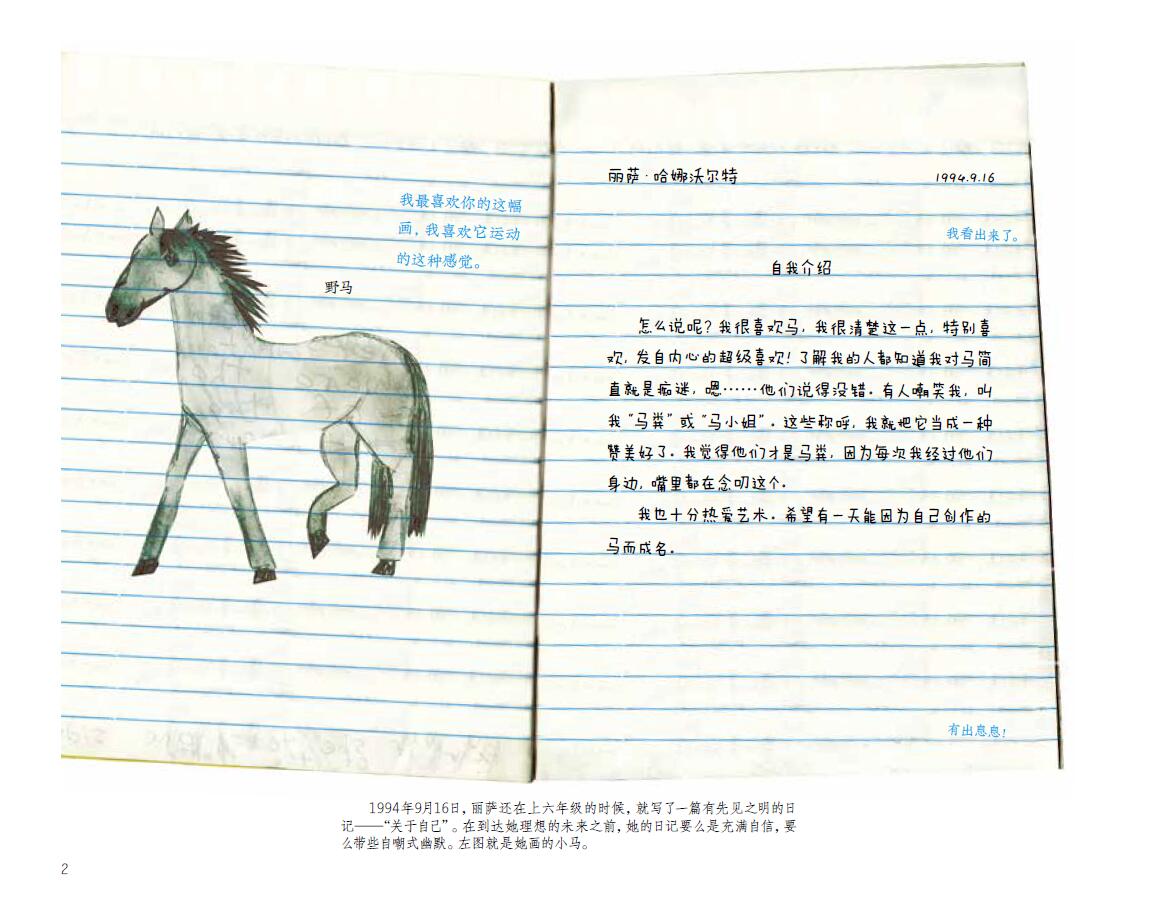 我最喜欢你的这幅
画，我喜欢它运动
的这种感觉。
野马
丽萨·哈娜沃尔特
1994.9.16
我看出来了。
自我介绍
怎么说呢？我很喜欢马，我很清楚这一点，特别喜
欢，发自内心的超级喜欢！了解我的人都知道我对马简
直就是痴迷，嗯……他们说得没错。有人嘲笑我，叫
我“马粪”或“马小姐”。这些称呼，我就把它当成一种
赞美好了。我觉得他们才是马粪，因为每次我经过他们
身边，嘴里都在念叨这个。
我也十分热爱艺术。希望有一天能因为自己创作的
马而成名。
有出息息！
1994年9月16日，丽萨还在上六年级的时候，就写了一篇有先见之明的日
记——“关于自己”。在到达她理想的未来之前，她的日记要么是充满自信，要
么带些自嘲式幽默。左图就是她画的小马。
2